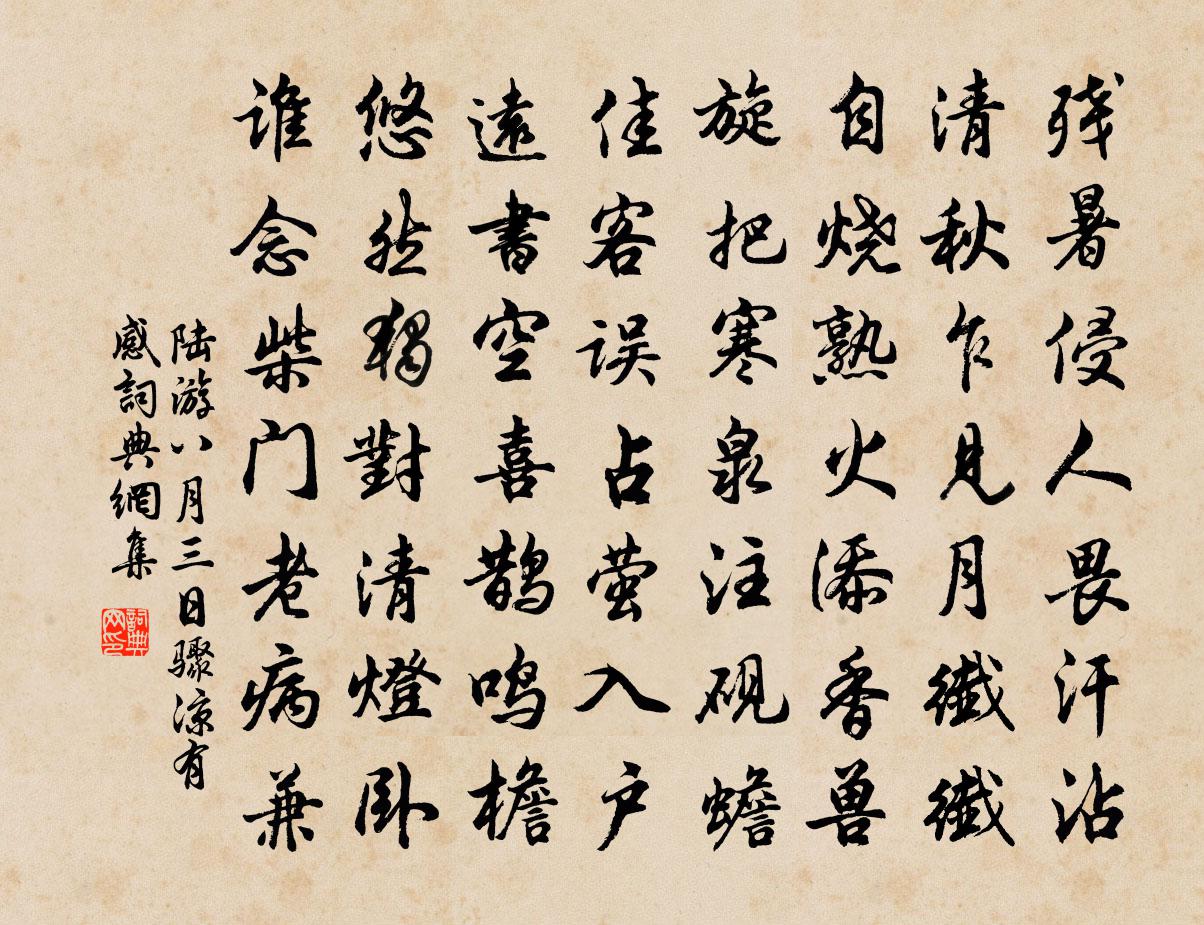 残暑侵人畏汗沾
清秋乍见月纖纖
自烧熟火添香兽
旋把寒泉注砚蟾
佳客误占萤入户
遠書空喜鹊鸣檐
悠然独對清燈卧
谁念柴门老病兼
陆游八月三日骤凉有
感詞典網集
詞典
网印